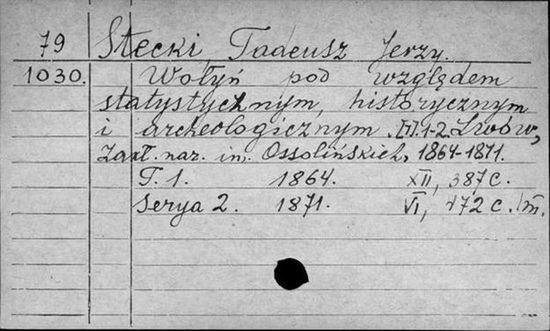 79 Stecki Tadeusz Jerzy.
1030. Wołyń pod względem
statystycznym, historycznym
i archeologicznym. [T] 1-2. Lwów,
Zakł. nar. im. Ossolińskich, 1864-1871.
T. 1. 1864. XII, 387 c.
Serya 2. 1871. VI, 472 c.